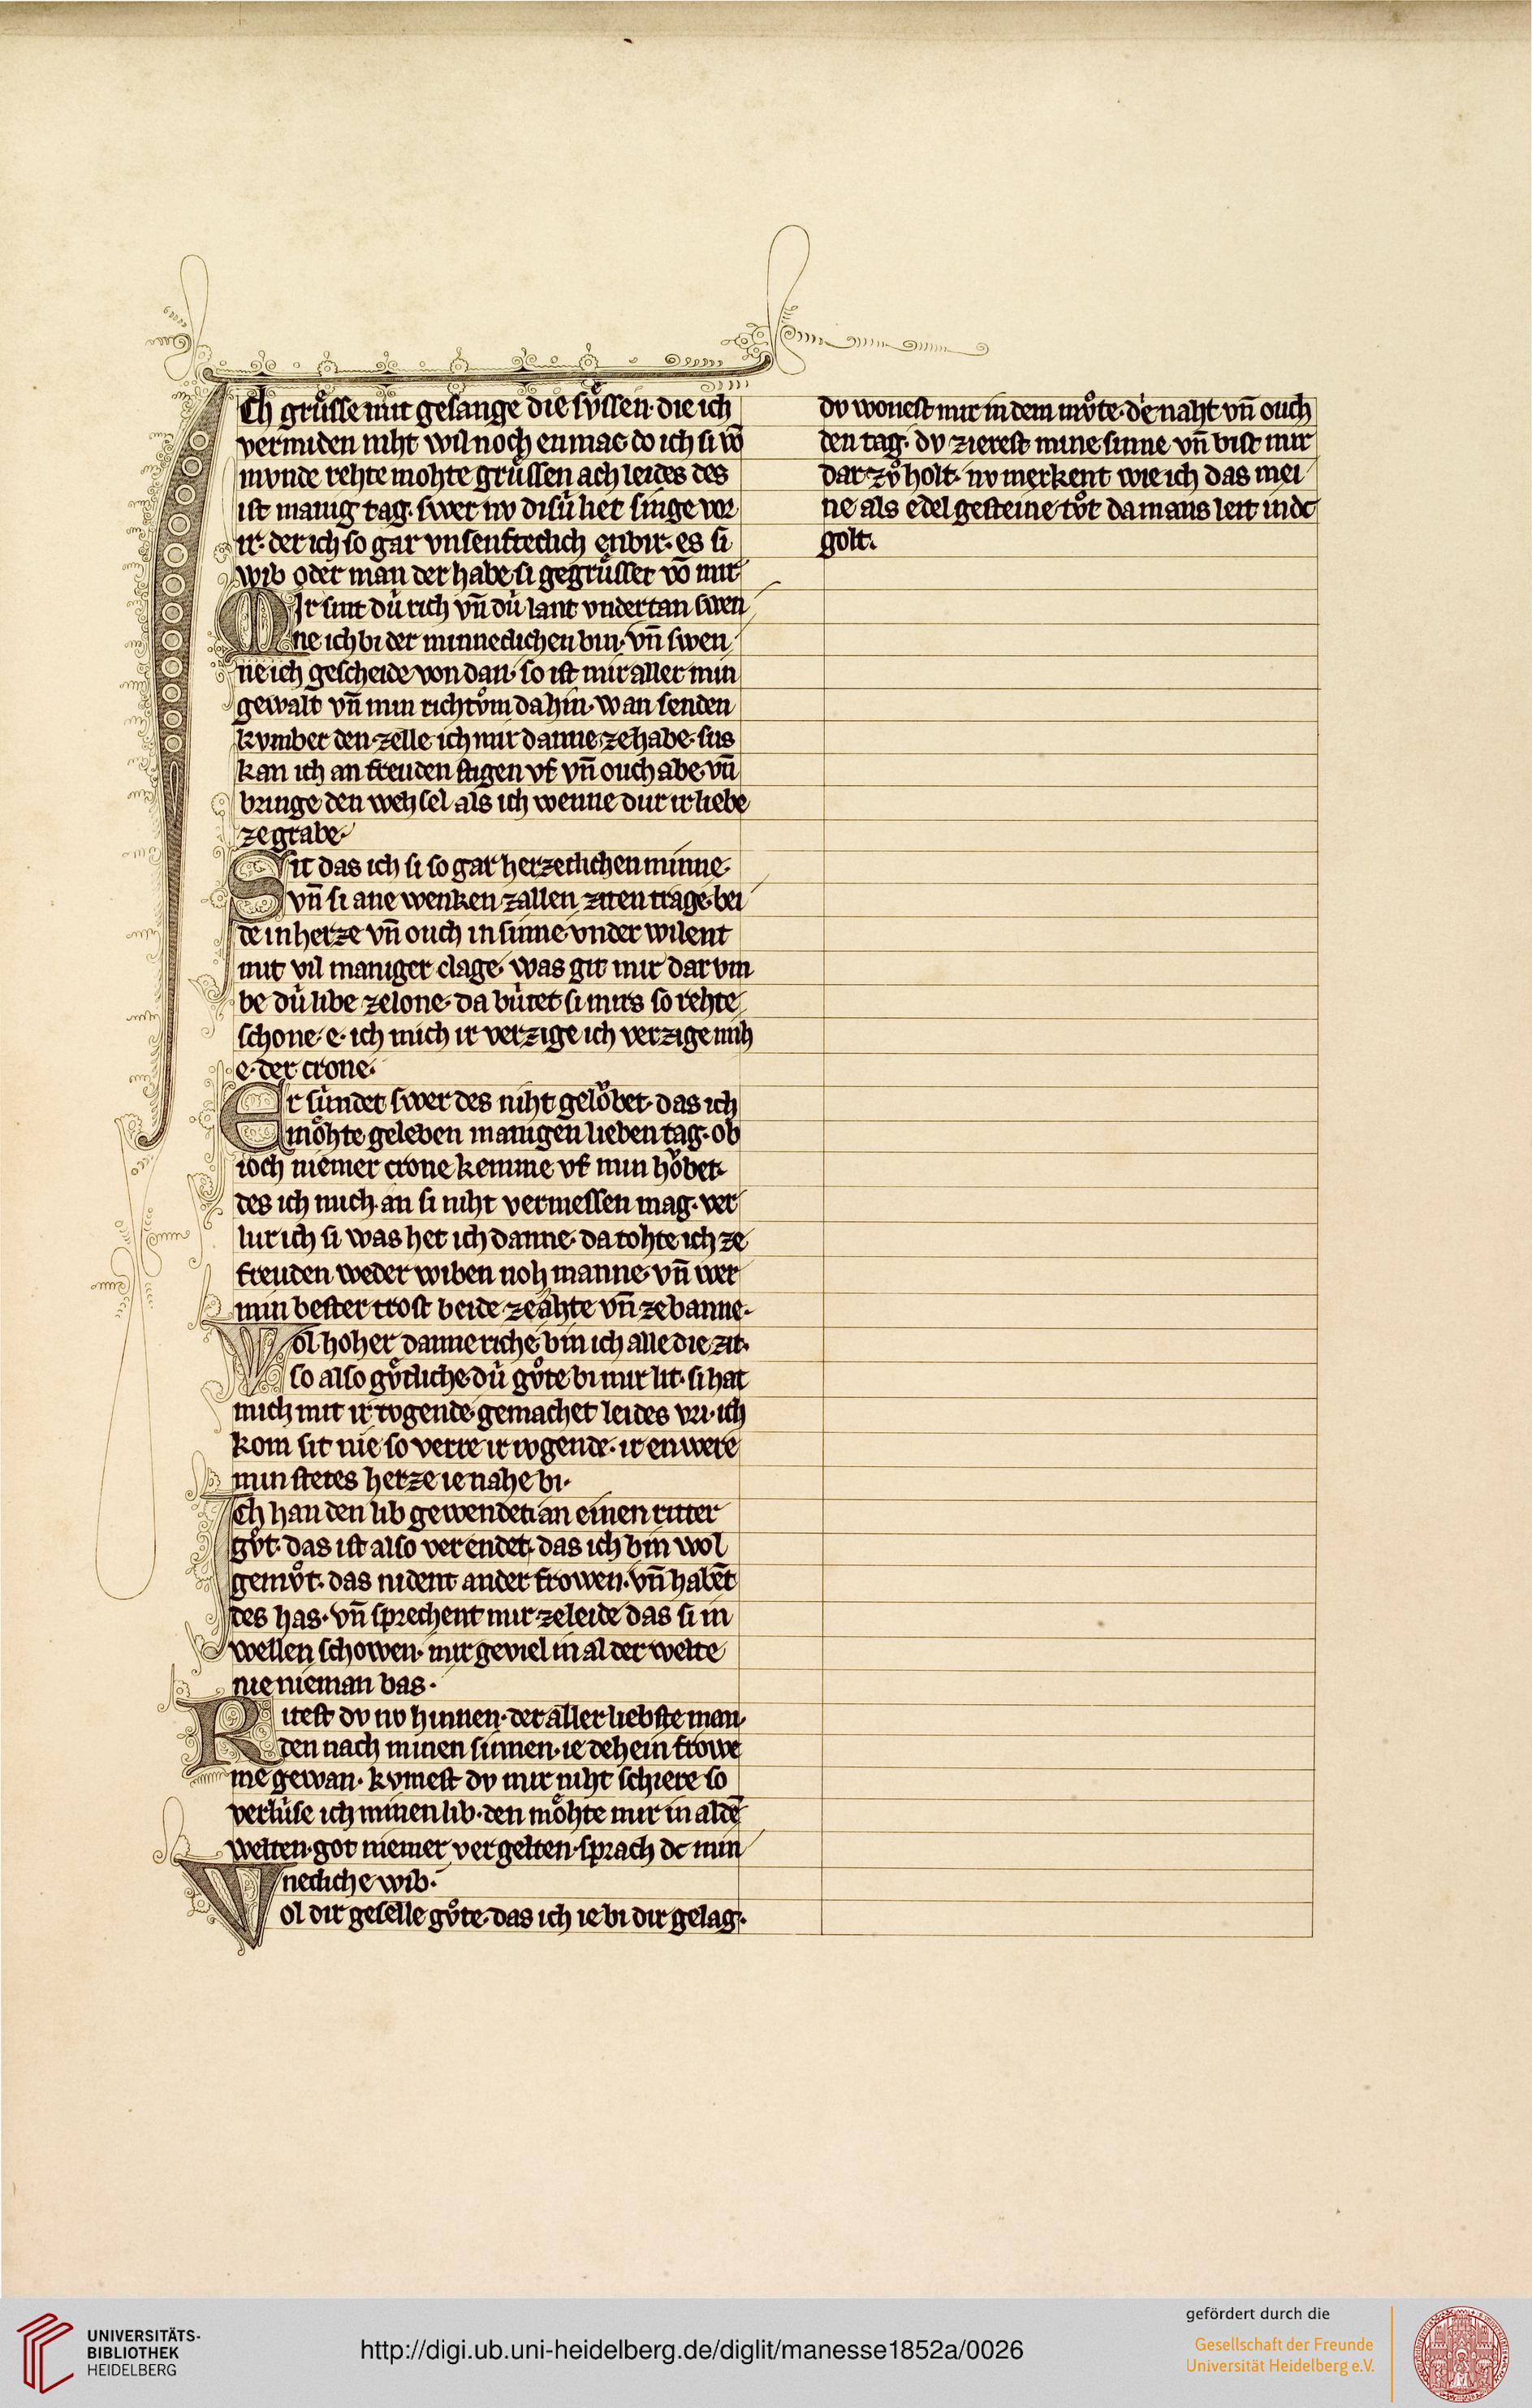 Ich grůsse mit gesange die sv̊ssen· die ich
vermiden niht wil noch enmac do ich si vō
mvnde rehte mohte grůssen ach leides des
ist manig tag. swer nv disü liet singe vor
ir· der ich so gar vnsenfteclich enbir· es si
wib oder man der habe si gegrůsset vō mir
Mir sint dü rich vn̄ dü lant vndertan swen
ne ich bi der minneclichen bin· vn̄ swen
ne ich gescheide von dan· so ist mir aller min
gewalt vn̄ min richtv̊m dahin· wan senden
kvmber den zelle ich mir danne zehabe· sus
kan ich an freuden stigen vf vn̄ ouch abe vn̄
bringe den wehsel als ich wenne dur ir liebe
zegrabe·
Sit das ich si so gar herzeclichen minne·
vn̄ si ane wenken zallen ziten trage· bei
de in herze vn̄ ouch in sinne vnder wilent
mit vil maniger clage· was git mir dar vm
be dü libe zelone· da bütet si mirs so rehte
schone· e· ich mich ir verzige ich verzige mih
e· der crone·
Er sündet swer des niht gelo̊bet· das ich
möhte geleben manigen lieben tag· ob
ioch niemer crone kemme vf min ho̊bet·
des ich mich an si niht vermessen mag· ver
lur ich si was het ich danne· da tohte ich ze
freuden weder wiben noh manne· vn̄ wer
min bester trost beide zeahte vn̄ zebanne·
Wol hoher danne riche bin ich alle die zit·
so also gv̊tliche dü gv̊te bi mir lit· si hat
mich mit ir tvgende gemachet leides vri· ich
kom sit nie so verre ir ivgende· ir en were
min stetes herze ie nahe bi·
Ich han den lib gewendet an einen ritter
gv̊t· das ist also verendet· das ich bin wol
gemv̊t· das nident ander frowen· vn̄ habēt
des has· vn̄ sprechent mir zeleide das si in
wellen schowen· mir geviel in al der welte
nie nieman bas·
Ritest dv nv hinnen· der aller liebste man·
den nach minen sinnen· ie dehein frowe
me gewan· kvmest dv mir niht schiere so
verlüse ich minen lib· den möhte mir in al dē
welten· got niemer vergelten· sprach dc min
neclich e wib·
Wol dir geselle gv̊te· das ich ie bi dir gelag·
dv wonest mir in dem mv̊te· de naht vn̄ ouch
den tag· dv zierest mine sinne vn̄ bist mir
dar zv̊ holt· nv merkent wie ich das mei
ne als edel gesteine tv̊t da mans leit in dc
golt·
UNIVERSITÄTS-
BIBLIOTHEK
HEIDELBERG
http://digi.ub.uni-heidelberg.de/diglit/manesse1852a/0026
gefördert durch die
Gesellschaft der Freunde
Universität Heidelberg e.V.